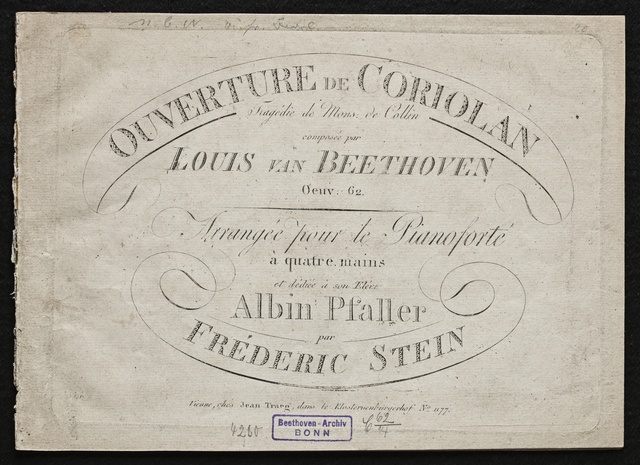 OUVERTURE DE CORIOLAN
Tragédie de Mons. de Collin
composée par
LOUIS VAN BEETHOVEN
Oeuv: 62.
Arrangée pour le Pianoforté
à quatre mains
et dédiée à son Elève
Albin Pfaller
par
FRÉDERIC STEIN
Vienne, chés Jean Traeg, dans le Klosterneuburgerhof No 1177.
4260
Beethoven-Archiv
BONN
C 62